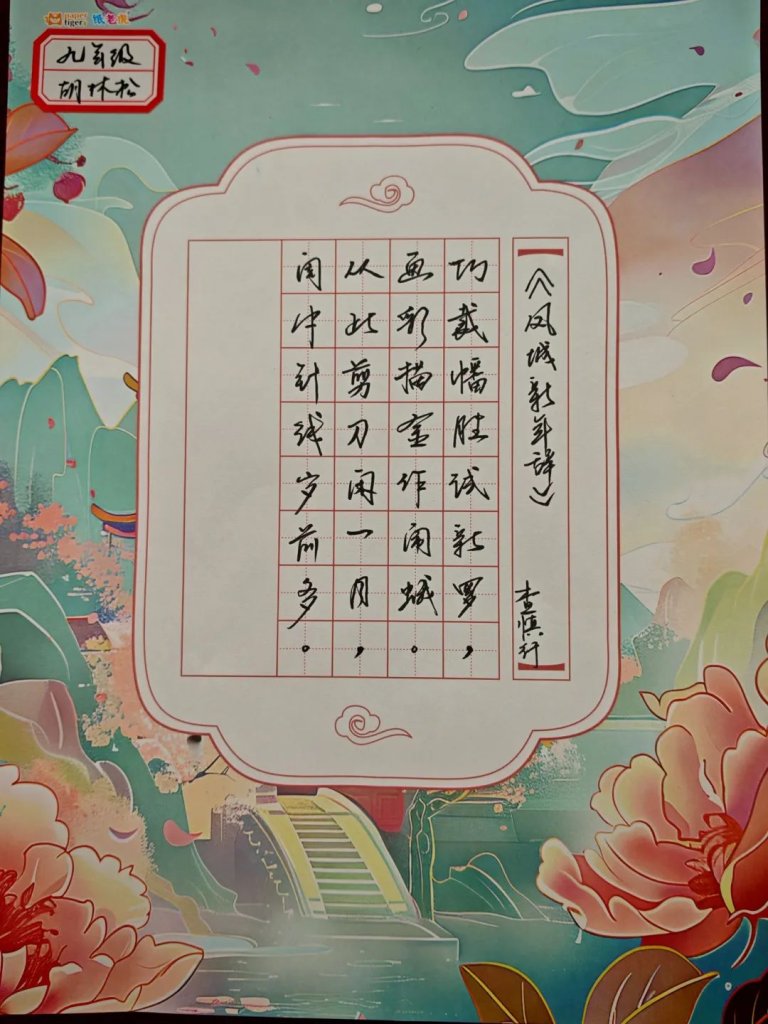 paper
tiger
纸老虎
九年级
胡林松
《凤城新年辞》
查慎行
巧裁幡胜试新罗，
画彩描金作闹蛾。
从此剪刀闲一月，
闺中针线岁前多。